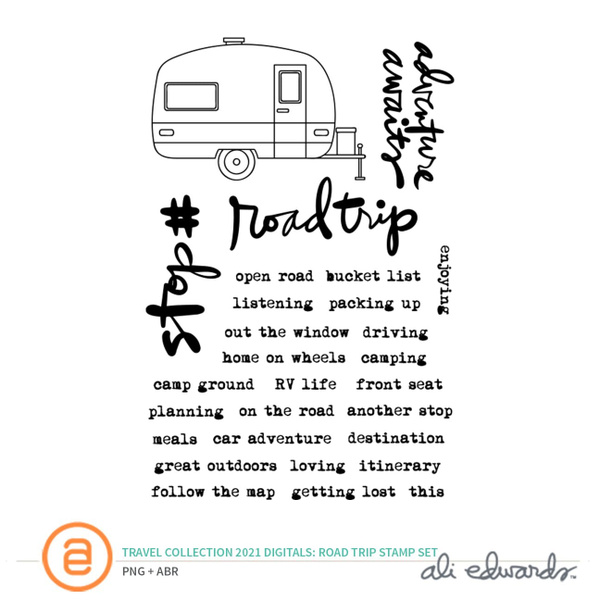 adventure
awaits
road trip
#dots
enjoying
open road bucket list
listening packing up
out the window driving
home on wheels camping
camp ground RV life front seat
planning on the road another stop
meals car adventure destination
great outdoors loving itinerary
follow the map getting lost this
ae
TRAVEL COLLECTION 2021 DIGITALS: ROAD TRIP STAMP SET
PNG + ABR
ali edwards™